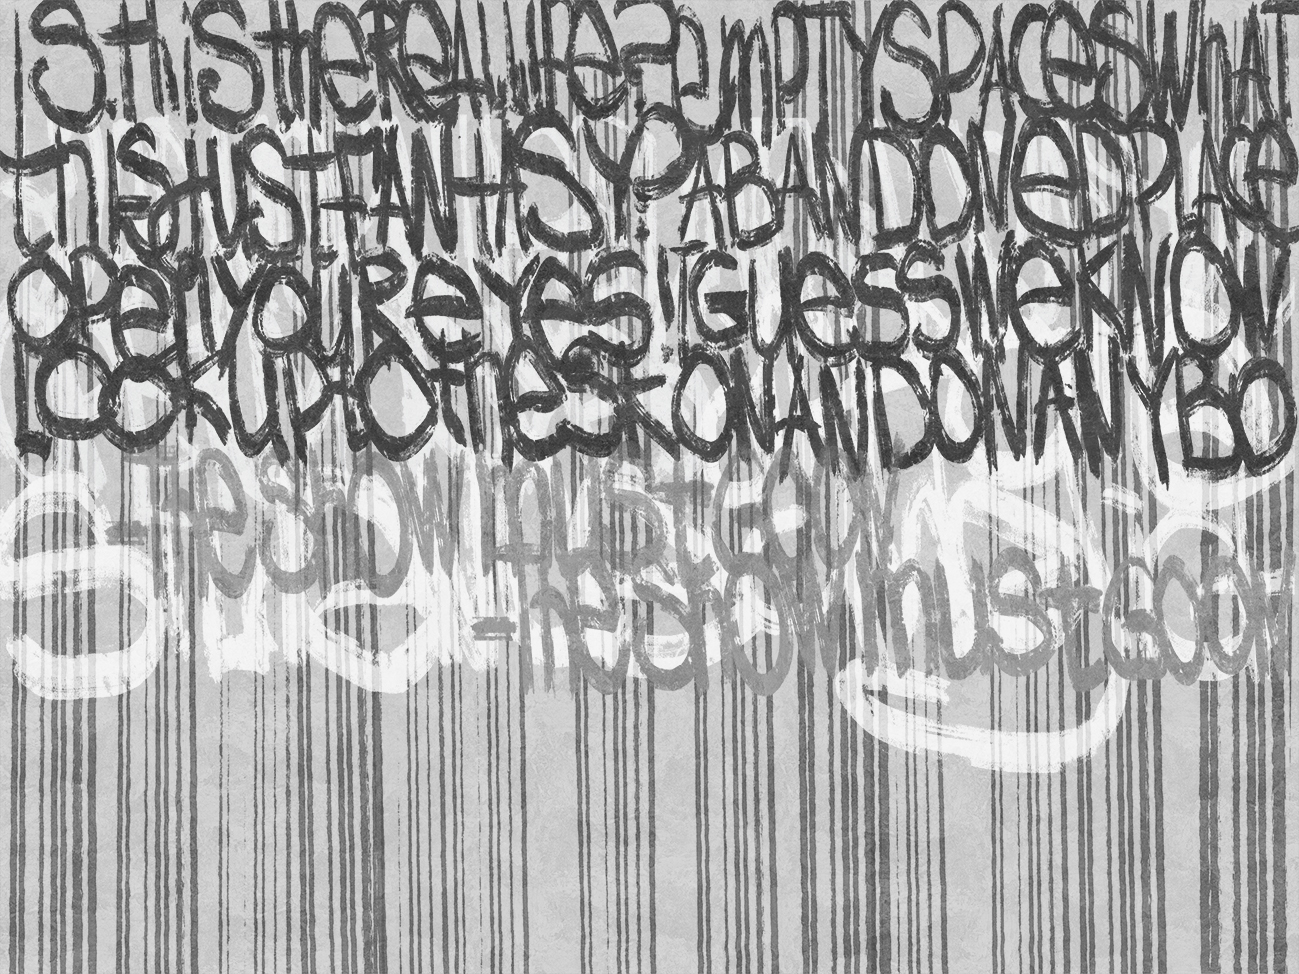 IS tHiS tHe ReAL LIFe? eMPTY SPACeS WhAT
tHIS JUST FANtASY? ABANDONeD PLACe
OPeN YOUR eYeS I GUeSS We KNOW
LOOK UP tO tHe SK ON AND ON ANYBO
tHe SHOW MUSt GO ON
tHe SHOW MUSt GO ON